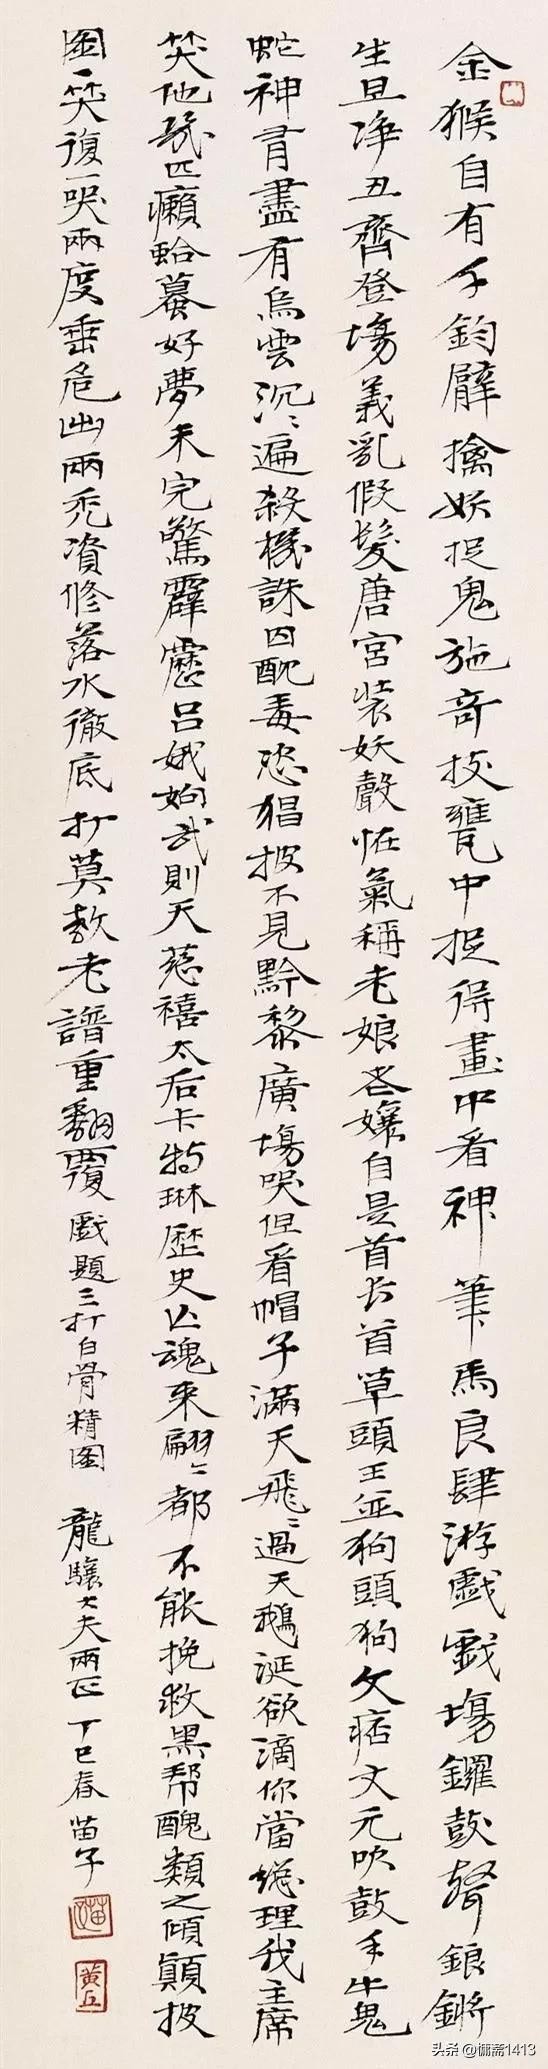 金猴自有千鈞臂擒妖捉鬼施奇技甕中捉得畫中看神筆馬良肆游戲戲場鑼鼓聲鋃鏘
生旦净丑齊登場義乳假髮唐宮裝妖聲怪氣稱老娘老孃自是首长首草頭王並狗頭狗文痞文元吹鼓手牛鬼
蛇神育盡有烏雲沉〻遍殺機誅四酖毒恣猖披不見黔黎廣場哭但看帽子滿天飛〻過天鵝涎欲滴你當總理我主席
笑他幾匹癩蛤蟇好夢未完驚霹靂呂娥姁武則天慈禧太后卡特琳歷史亾魂来翩〻都不能挽救黑帮醜類之傾顛披
圖一笑復一哭兩度垂危出兩禿資修落水徹底打莫教老譜重翻覆戲題三打白骨精圖 龍驤大夫兩正 丁巳春苗子
苗
黄
头条@慵斋1413